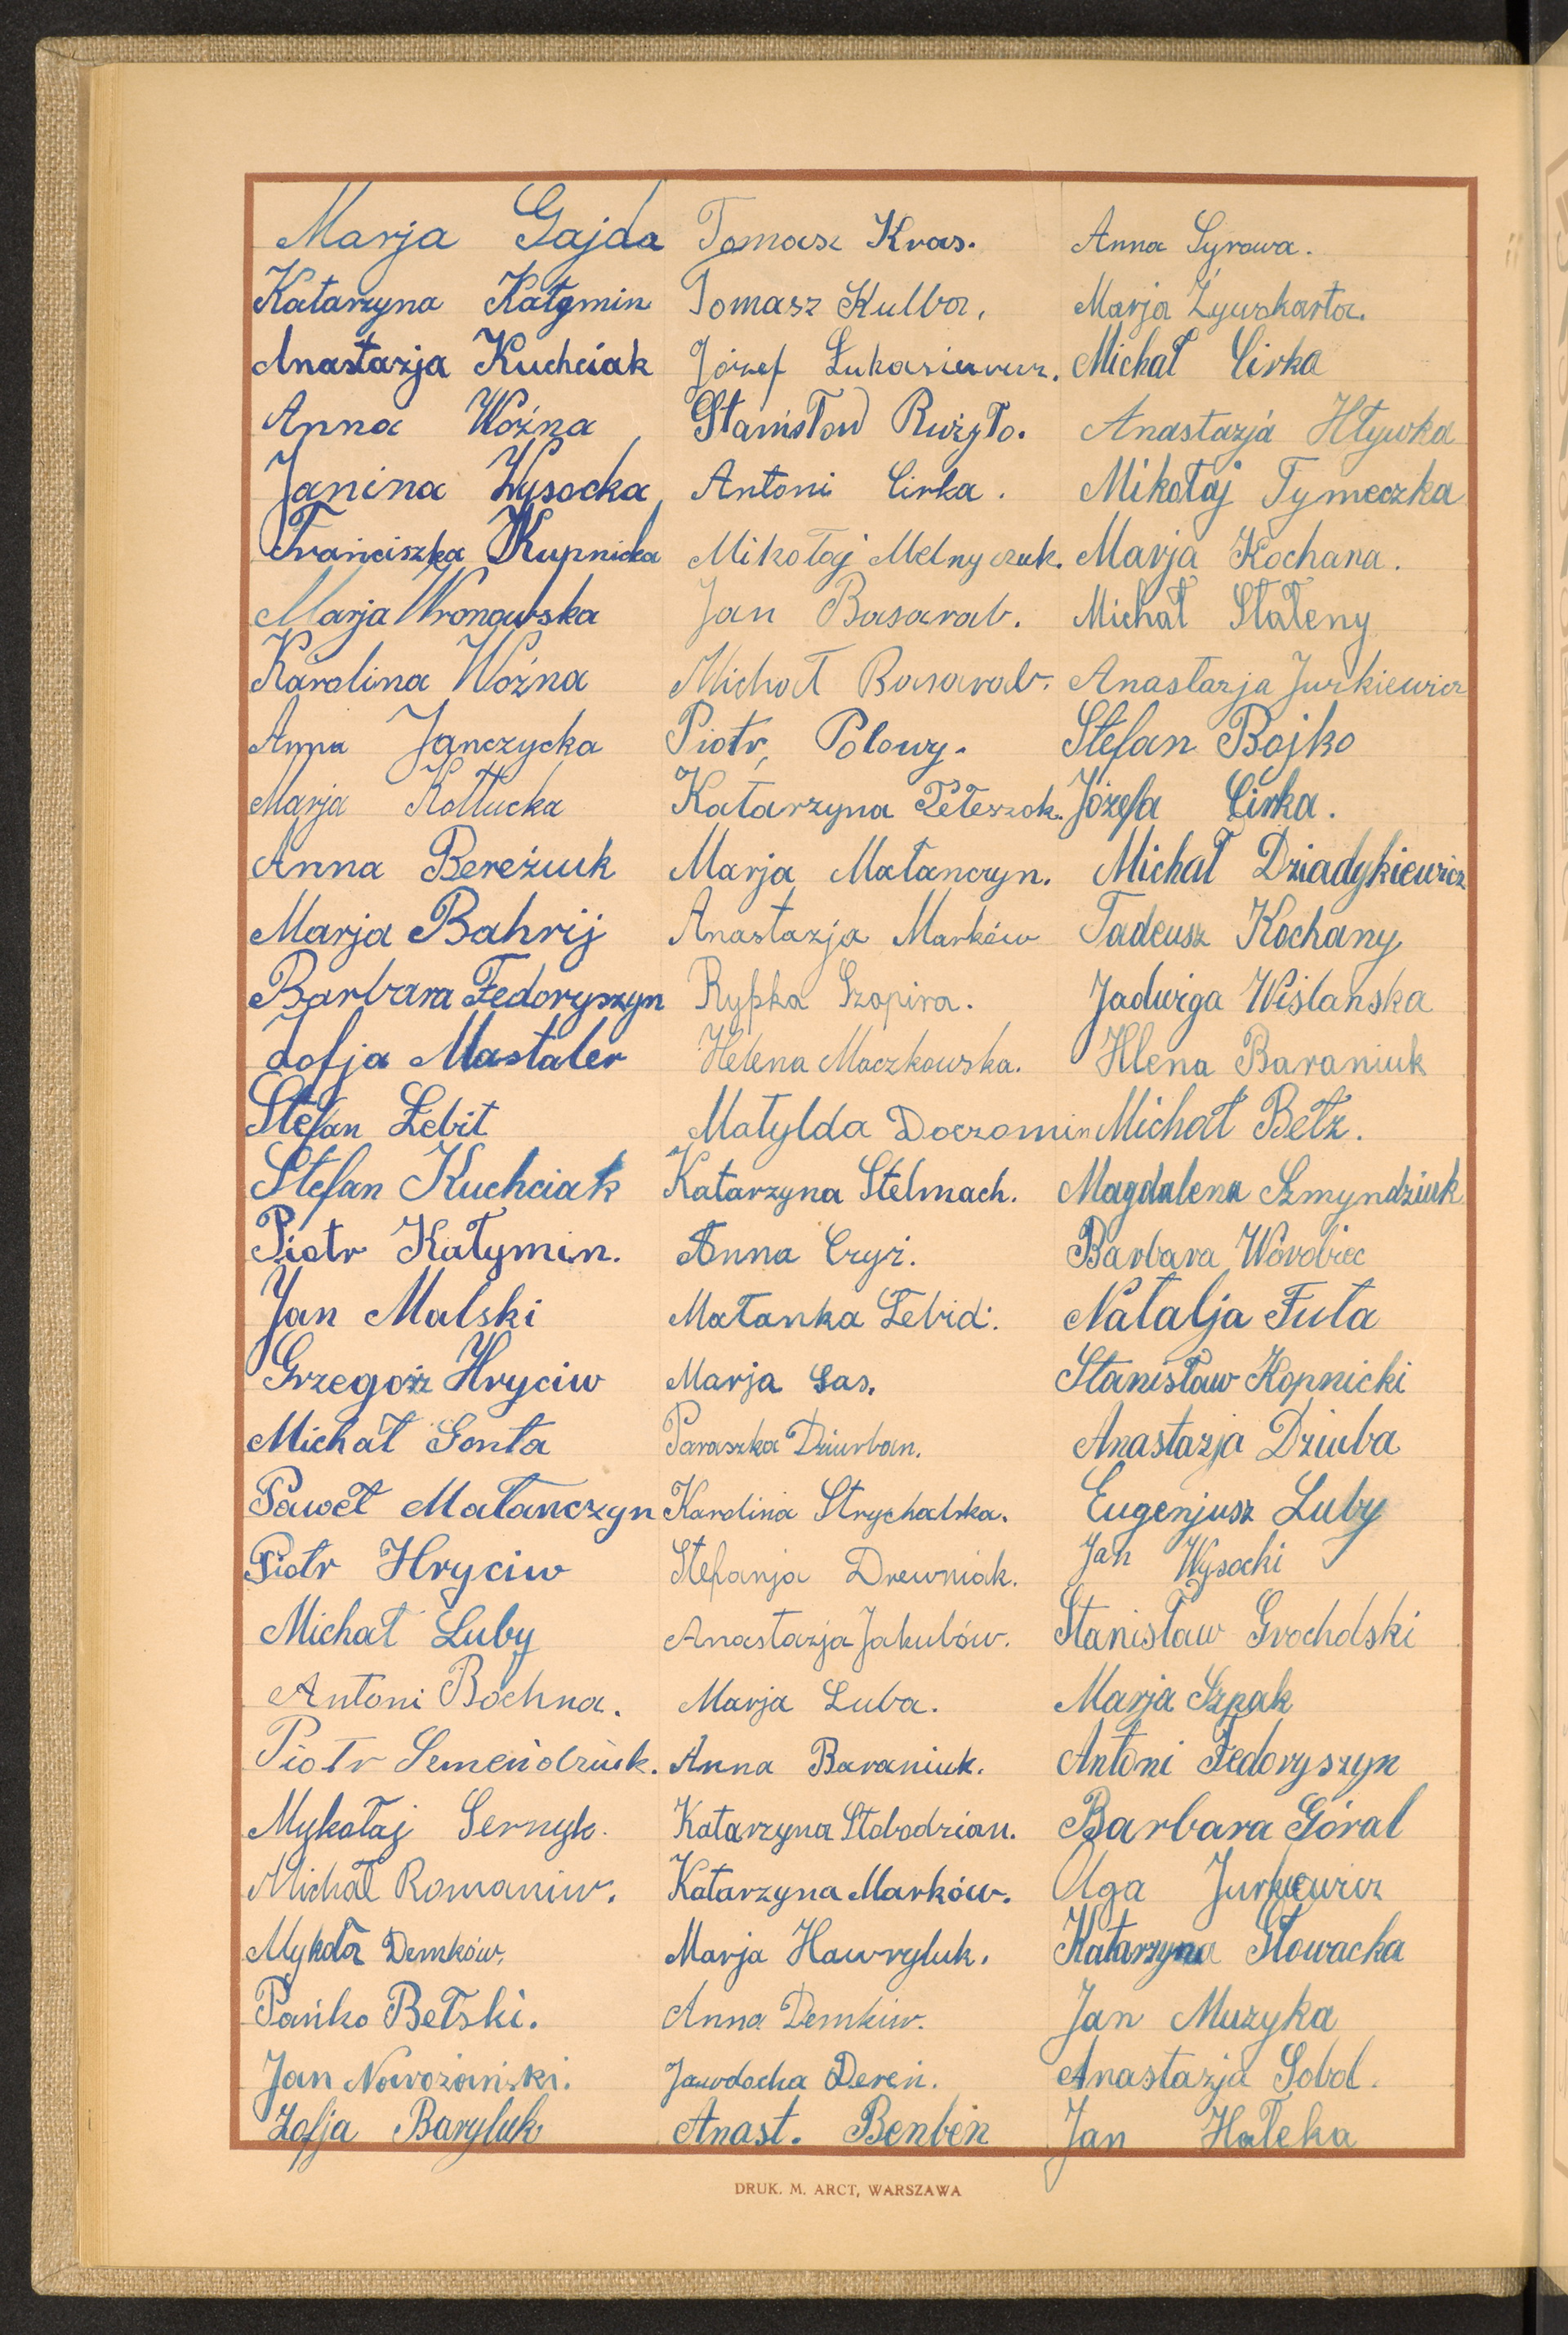 Marja Gajda
Katarzyna Kałymin
Anastazja Kuchciak
Anna Woźna
Janina Wysocka
Franciszka Kupnicka
Marja Wronowska
Karolina Woźna
Anna Janczycka
Marja Kołtucka
Anna Bereżiuk
Marja Bahrij
Barbara Fedoryszyn
Zofja Mastaler
Stefan Łebit
Stefan Kuchciak
Piotr Kałymin.
Jan Malski
Grzegorz Hryciw
Michał Gonta
Paweł Małanczyn
Piotr Hryciw
Michał Luby
Antoni Bochna.
Piotr Semeńdziuk.
Mykołaj Sernyk.
Michał Romaniw.
Mykoła Demków.
Pańko Bełski.
Jan Nowożański.
Zofja Baryluk
Tomasz Kras.
Tomasz Kulba.
Józef Łukasiewicz.
Stanisław Rużyło.
Antoni Cirka.
Mikołaj Melnyczuk.
Jan Basarab.
Michał Basarab.
Piotr Polowy.
Katarzyna Peteszok.
Marja Małanczyn.
Anastazja Marków
Ryfka Szapira.
Helena Maczkowska.
Matylda Doczomin
Katarzyna Stelmach.
Anna Czyż.
Małanka Łebid.
Marja Gas.
Paraszka Dziurban.
Karolina Strychalska.
Stefanja Drewniak.
Anastazja Jakubów.
Marja Luba.
Anna Baraniuk.
Katarzyna Słobodzian.
Katarzyna Marków.
Marja Hawryluk.
Anna Demkiw.
Jawdocha Dereń.
Anast. Benben
Anna Syrowa.
Marja Żywokarta.
Michał Cirka
Anastazja Hływka
Mikołaj Tymeczka
Marja Kochana.
Michał Stateny
Anastazja Jurkiewicz
Stefan Bojko
Józefa Cirka.
Michał Dziadykiewicz
Tadeusz Kochany
Jadwiga Wiślanska
Hlena Baraniuk
Michał Bełz.
Magdalena Szmyndziuk
Barbara Worobiec
Natalja Futa
Stanisław Kopnicki
Anastazja Dziuba
Eugenjusz Luby
Jan Wysocki
Stanisław Grocholski
Marja Szpak
Antoni Fedoryszyn
Barbara Góral
Olga Jurkiewicz
Katarzyna Słowacka
Jan Muzyka
Anastazja Sobol.
Jan Hałeka
DRUK. M. ARCT, WARSZAWA